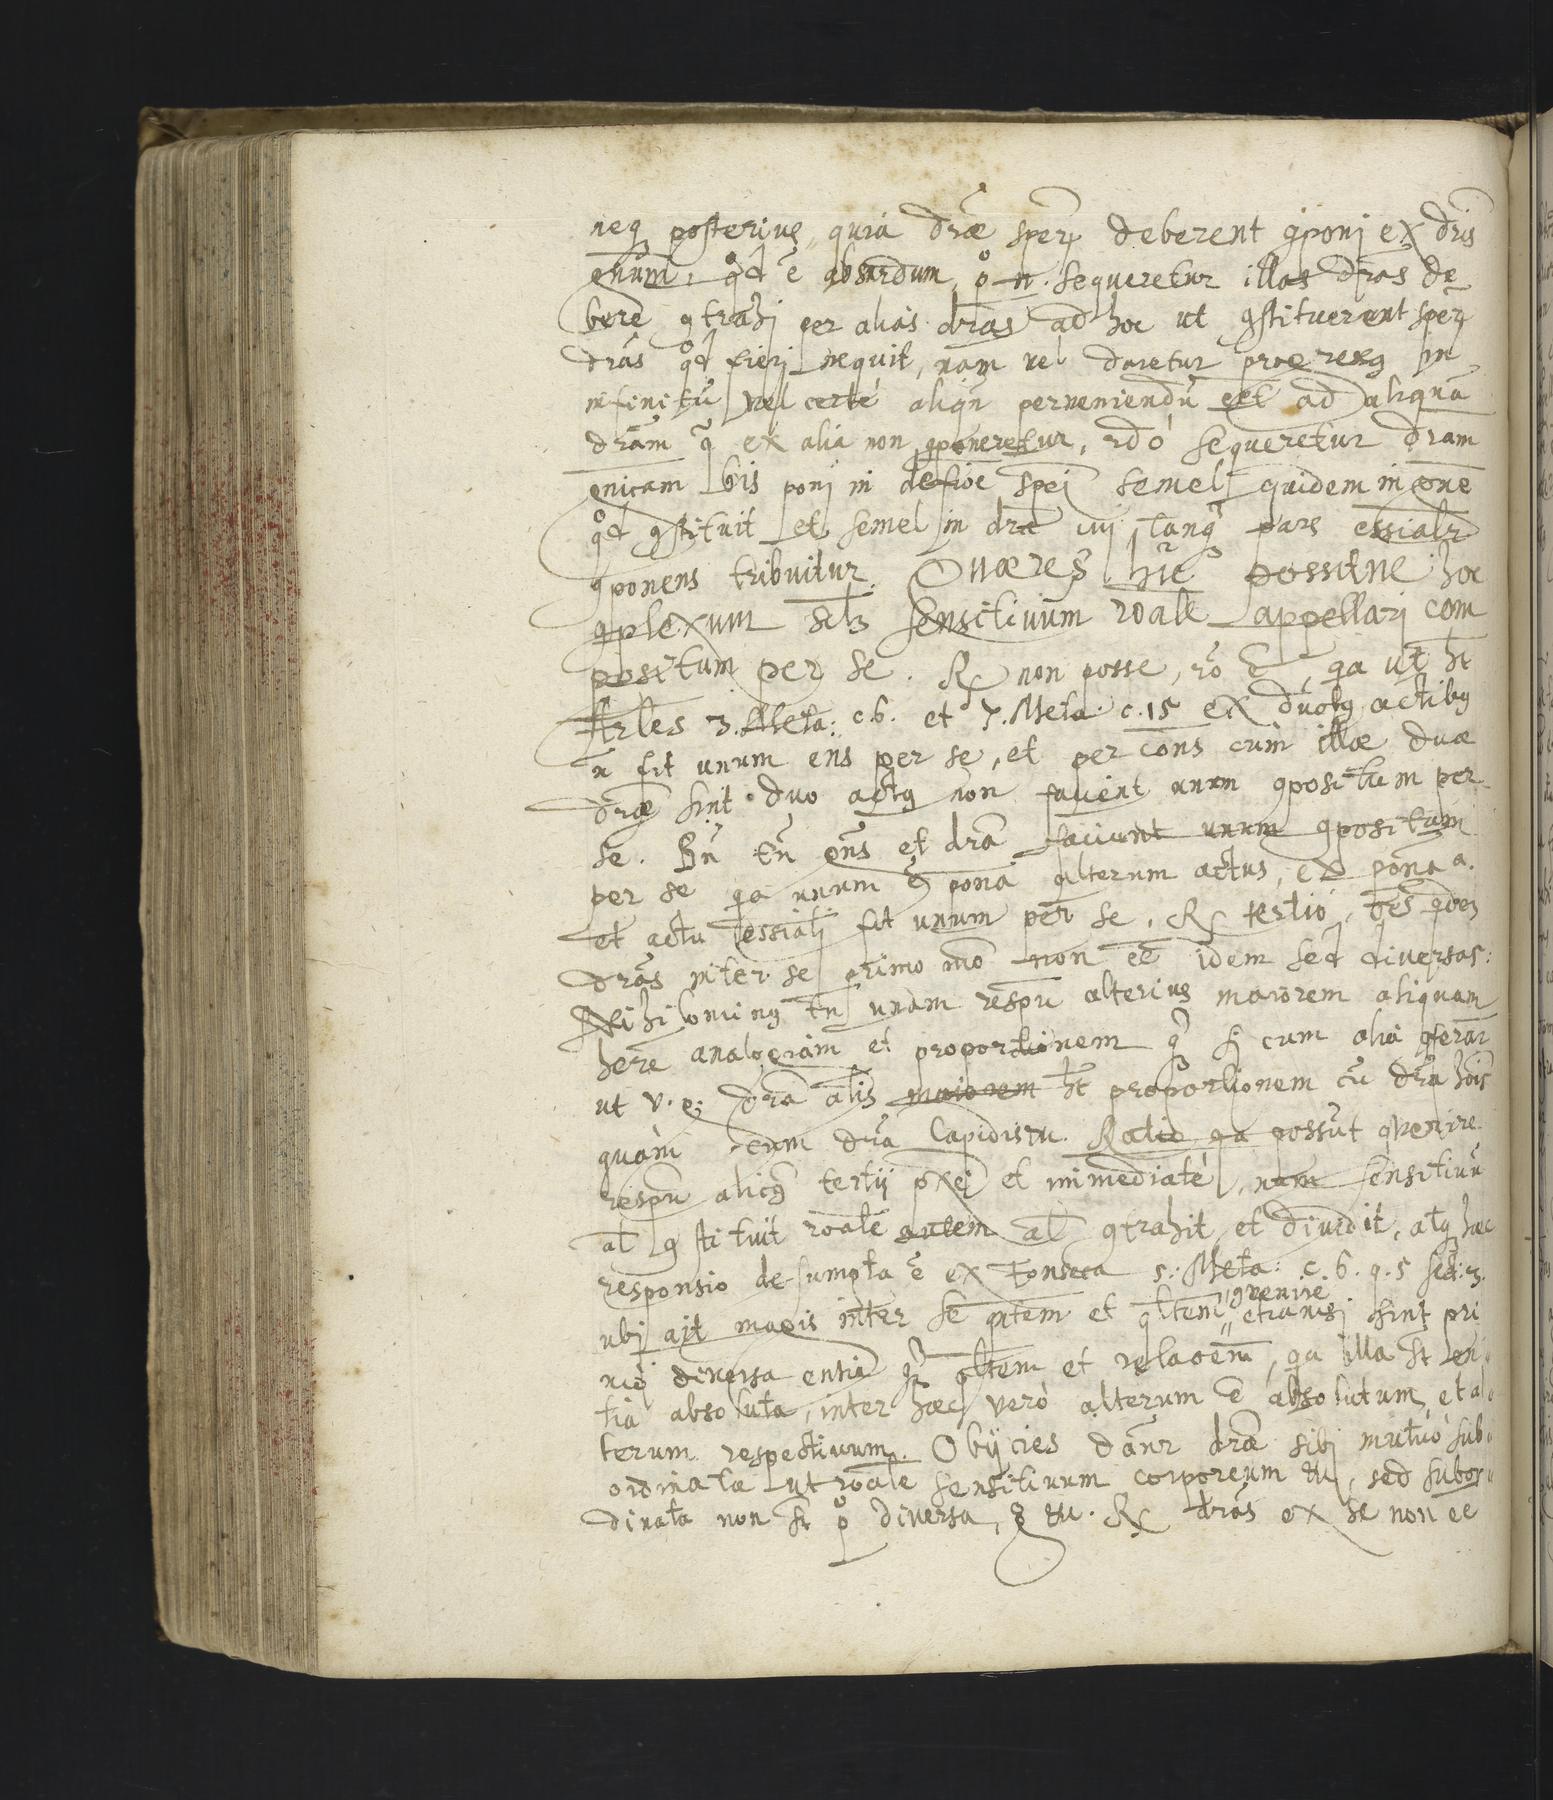 neq posterius, quia dræ sperū deberent 9poni ex dris
gnūm, qd ē absurdum, pº n. sequeretur illas dras de
bere 9trahi per alias dras ad hoc ut 9stituerent sperū
dras qd fieri nequit, nam vel daretur processus in
infinitū vel certé aliqn perveniendū eēt ad aliquā
dram q̄ ex alia non 9poneretur, 2dó sequeretur dram
gnicam bis poni in defioē spēi semel quidem in gne
qd 9stituit et semel in dra cui tanq pars essialr
9ponens tribuitur. Quæres hic possitne hoc
9plexum sclz sensitivum rōale appellari com
positum per se. R non posse, rō ē, qa ut ht
Arles 3. Meta: c. 6. et 7. Meta. c. 15 ex duobq actibq
n̄ fit unum ens per se, et per cons cum illæ duæ
dræ sint duo actq non facient unum 9positum per
se. Bn̄ tn̄ gns et dra faciunt unum 9positum
per se qa unum ē pona alterum actus, ex pona a.
et actu essiali fit unum per se. R tertio, oēs qdem
dras inter se primo mō non eē idem sed diversas:
Nihilominq tn̄ unam respu alterius maiorem aliquam
here analogiam et proportionem q si cum alia 9ferar
ut v. g. dra alis maiorem ht proportionem cū dra hois
quàm cum dra lapidis tu. Ratio qa possūt 9venire
respu alicq tertij pxej et immediaté, nam sensitivū
al 9stituit rōale autem al 9trahit et dividit, atq hæc
responsio desumpta ē ex Fonseca 5. Meta: c. 6. q. 5 sect: 3.
ubi ait magis inter se qtem et qltem 9venire etiamsi sint pri
mò diversa entia q qltem et relaoem, qa illa st en
tia absoluta, inter hæc verò alterum ē absolutum, et al
terum respectivum. Obijcies dantr dræ sibi mutuò sub
ordinatæ ut rōale sensitivum corporeum tu, sed subor
dinata non st pº diversa, g tu. R dras ex se non eē